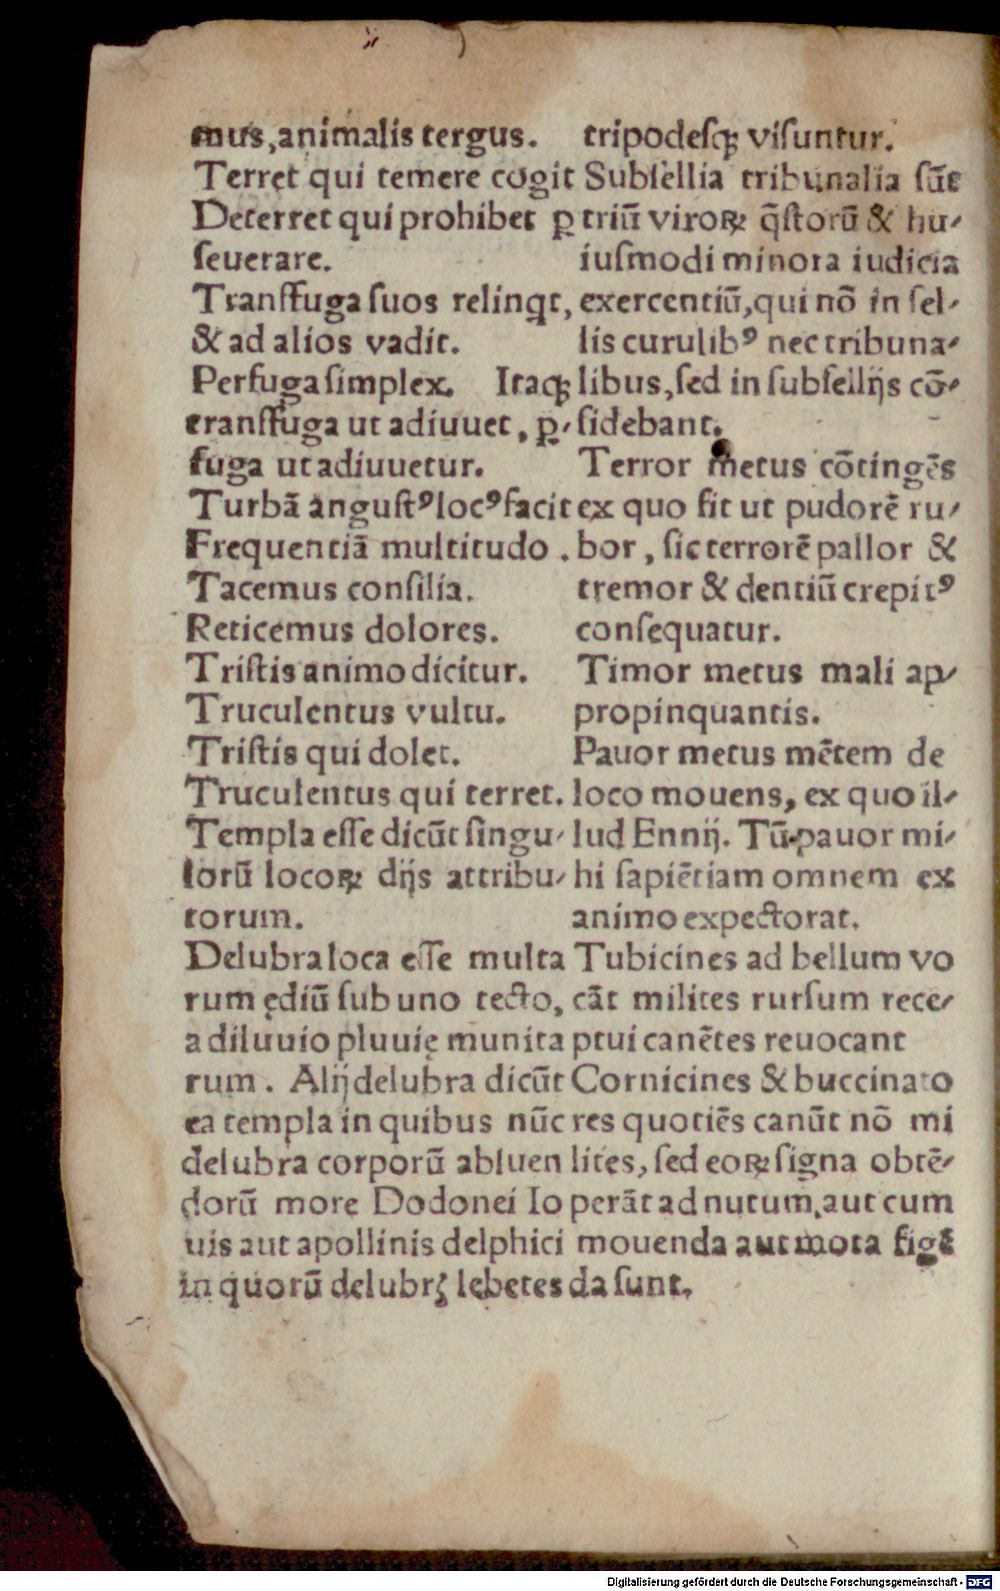 mus,animalis tergus.
Terret qui temere cogit
Deterret qui prohibet ꝑ
ſeuerare.
Tranſfuga ſuos relinqt,
& ad alios vadit.
Perfuga ſimplex. Itaqꝫ
tranſfuga ut adiuuet, ꝑ⸗
fuga ut adiuuetur.
Turbā anguſtꝰ locꝰ facit
Frequentiā multitudo.
Tacemus conſilia.
Reticemus dolores.
Triſtis animo dicitur.
Truculentus vultu.
Triſtis qui dolet.
Truculentus qui terret.
Templa eſſe dicūt ſingu⸗
lorū locoꝝ dijs attribu⸗
torum.
Delubra loca eſſe multa
rum ędiū ſub uno tecto,
a diluuio pluuię munita
rum. Alij delubra dicūt
ea templa in quibus nūc
delubra corporū abluen
dorū more Dodonei Io
uis aut apollinis delphici
in quorū delubrꝭ lebetes
tripodeſqꝫ viſuntur.
Subſellia tribunalia ſūt
triū viroꝝ q̄ſtorū & hu⸗
iuſmodi minora iudicia
exercentiū,qui nō in ſel⸗
lis curulibꝰ nec tribuna⸗
libus,ſed in ſubſellijs cō⸗
ſidebant.
Terror metus cōtingēs
ex quo fit ut pudorē ru⸗
bor, ſic terrorē pallor &
tremor & dentiū crepitꝰ
conſequatur.
Timor metus mali ap⸗
propinquantis.
Pauor metus mētem de
loco mouens, ex quo il⸗
lud Ennij. Tū pauor mi⸗
hi ſapiētiam omnem ex
animo expectorat.
Tubicines ad bellum vo
cāt milites rurſum rece⸗
ptui canētes reuocant
Cornicines & buccinato
res quotiēs canūt nō mi
lites, ſed eoꝝ ſigna obtē⸗
perāt ad nutum,aut cum
mouenda aut mota figē
da ſunt.
Digitalisierung gefördert durch die Deutsche Forschungsgemeinschaft - DFG